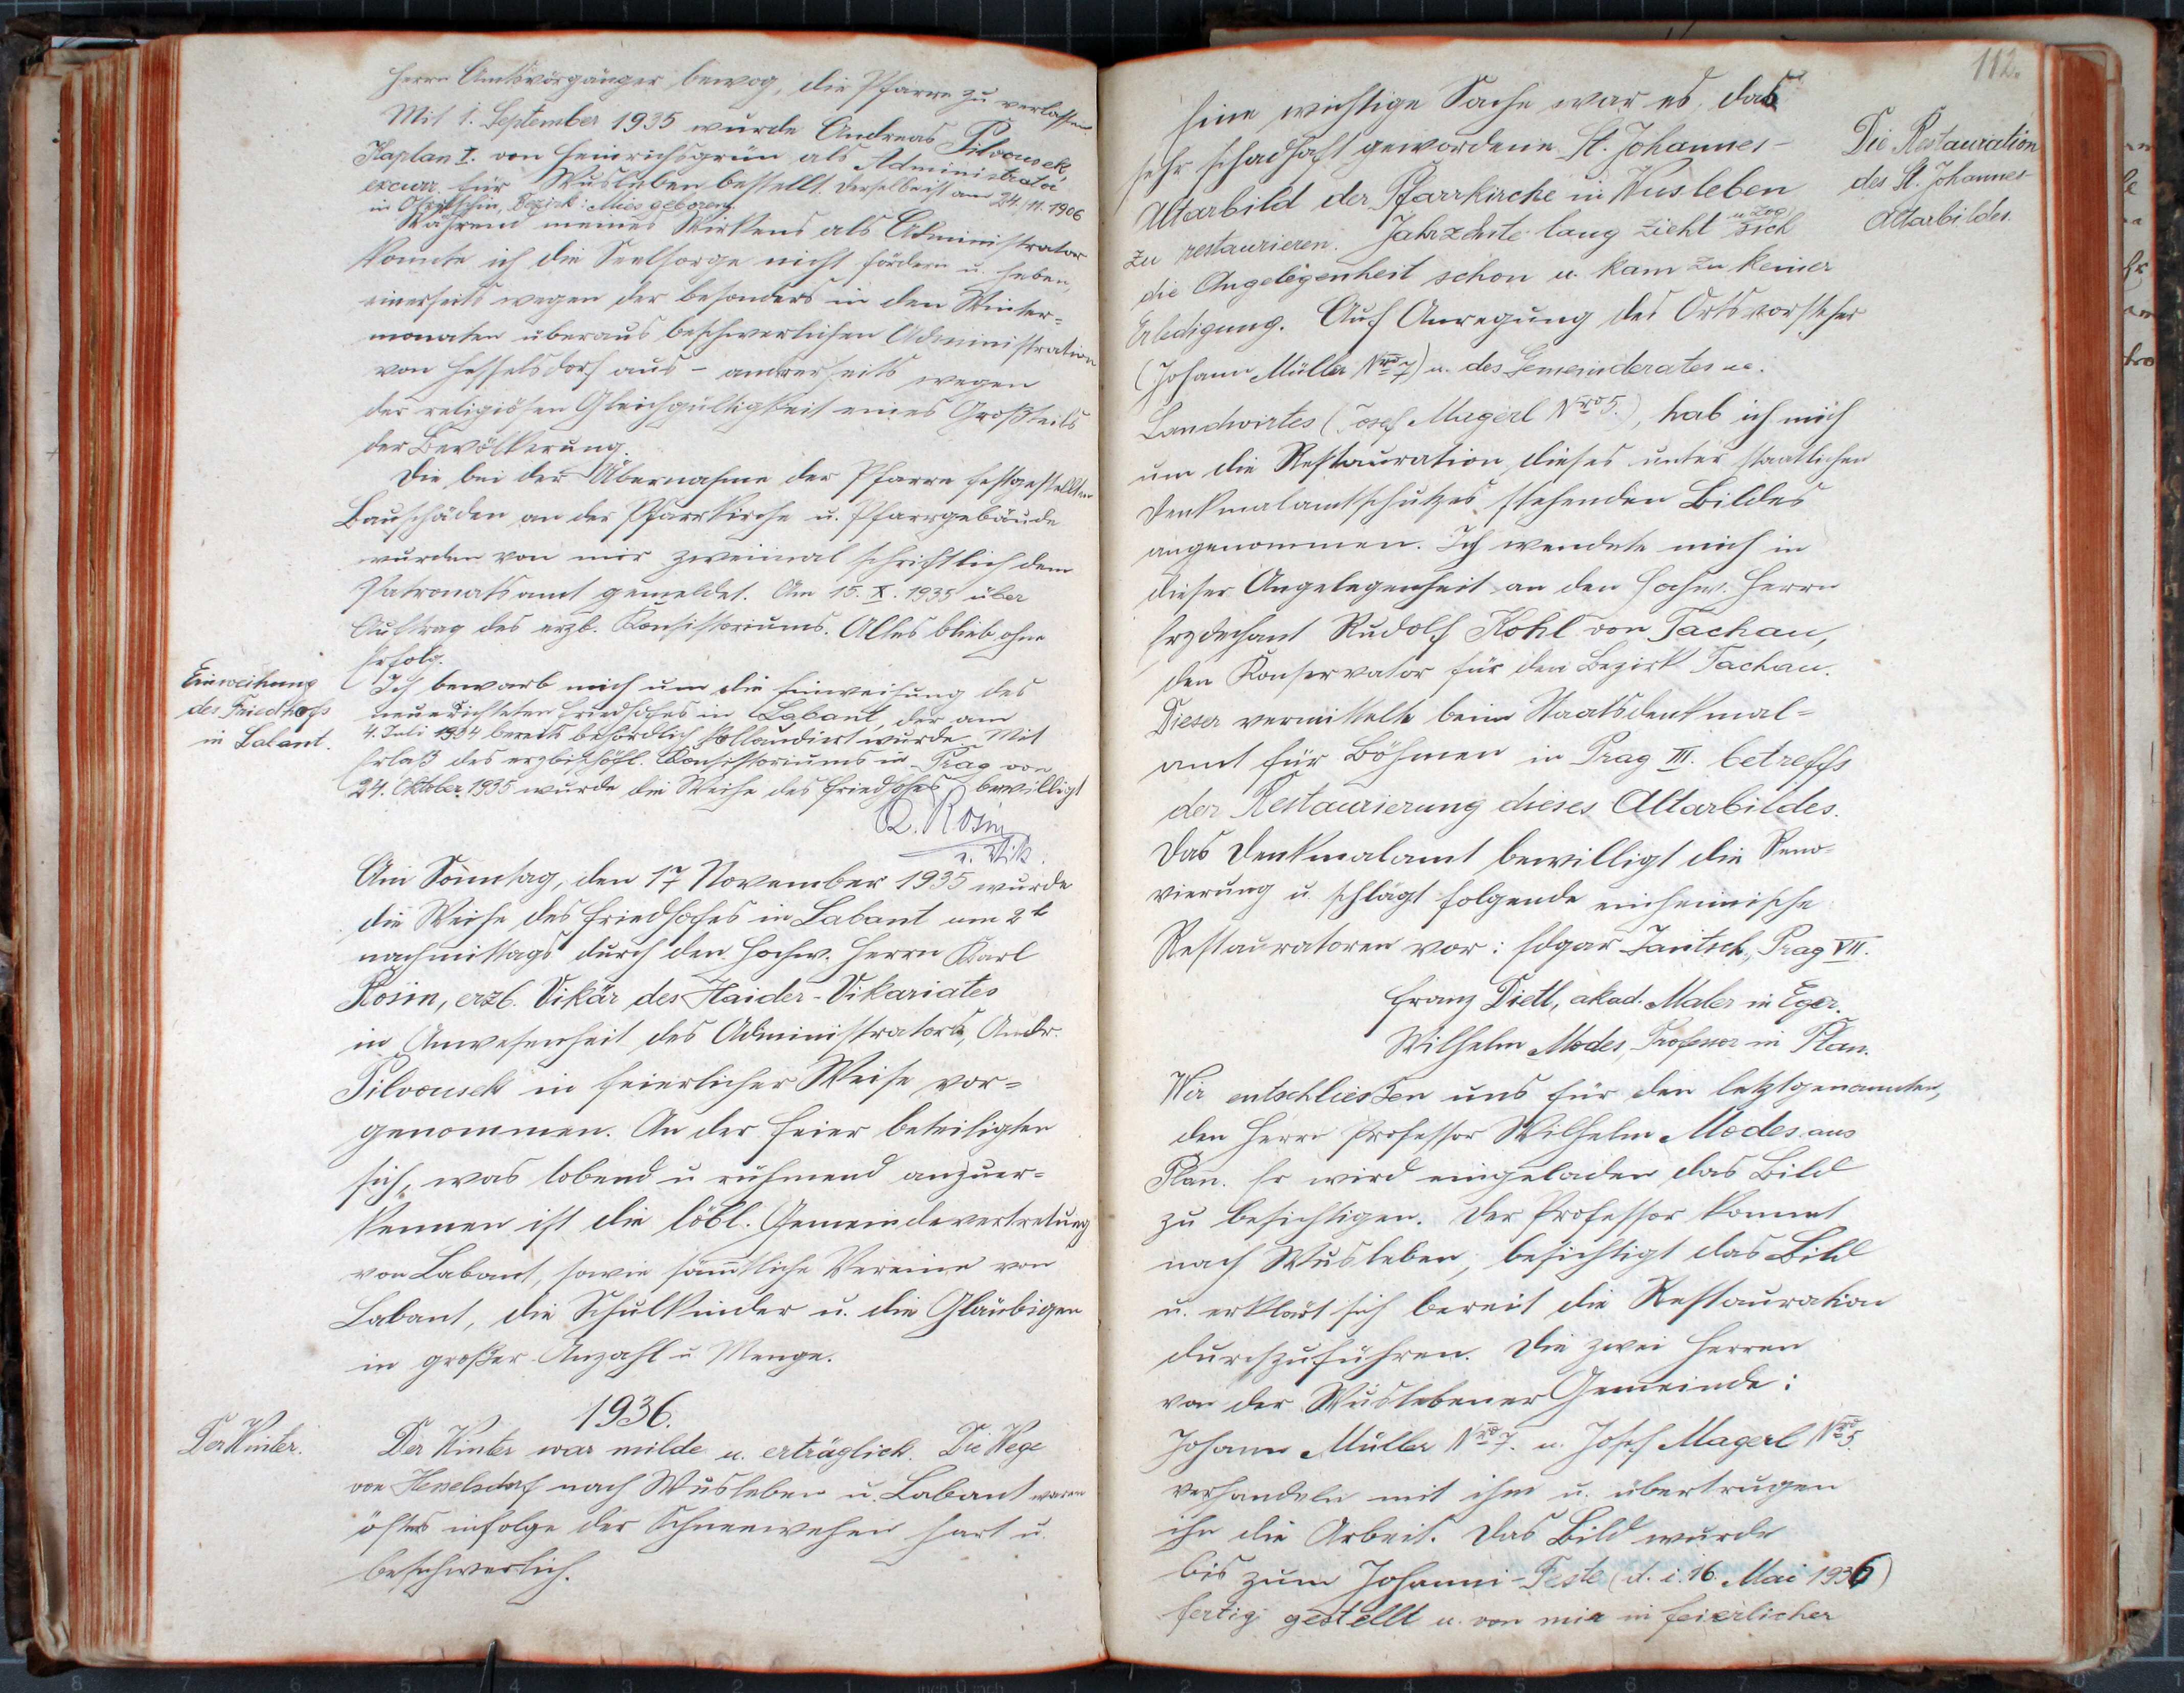 Herrn Amtsvorgänger bewog, die Pfarre zu verlassen.
Mit 1. September 1935 wurde Andreas Pilvousek,
Kaplan I. von Heinrichsgrün als Administrator
excurr. für Wusleben bestellt. Derselbe ist am 24./11. 1906
in Bezirk: Mies geboren.
Während meines Wirkens als Administrator
konnte ich die Seelsorge nicht fördern u. heben,
einerseits wegen der besonders in den Winter=
monaten überaus beschwerlichen Administration
von Hesselsdorf aus - andrerseits wegen
der religiösen Gleichgültigkeit eines Großteils
der Bevölkerung.
Die bei der Übernahme der Pfarre festgestellten
Bauschäden an der Pfarrkirche u. Pfarrgebäude
wurden von mir zweimal schriftlich dem
Patronatsamt gemeldet. Am 15. X. 1935 über
Auftrag des erzb. Konsistoriums. Alles blieb ohne
Erfolg.
Einweihung
des Friedhofs
in Labant.
Ich bewarb mich um die Einweihung des
neuerrichteten Friedhofes in Labant, der am
4. Juli 1934 bereits behördlich kollaudiert wurde. Mit
Erlaß des erzbischöfl. Konsistoriums in Prag von
24. Oktober 1935 wurde die Weihe des Friedhofes bewilligt
K. Rosin
e. Vik.
Am Sonntag, den 17 November 1935 wurde
die Weihe des Friedhofes in Labant um 2h
nachmittags durch den Hochw. Herrn Karl
Rosin, erzb. Vikär des Haider-Vikariates
in Anwesenheit des Administrators, Andr.
Pilvousek in feierlicher Weise vor=
genommen. An der Feier beteiligten
sich, was lobend u rühmend anzuer=
kennen ist die löbl. Gemeindevertretung
von Labant, sowie sämtliche Vereine von
Labant, die Schulkinder u. die Gläubigen
in großer Anzahl u Menge.
1936.
Der Winter.
Der Winter war milde u. erträglich. Die Wege
von Hesselsdorf nach Wusleben u. Labant waren
öfters infolge der Schneewehen hart u.
beschwerlich.
112.
Eine wichtige Sache war es, das
sehr schadhaft gewordene St. Johannes-
Altarbild der Pfarrkirche in Wusleben
zu restaurieren. Jahrzehnte lang zieht u. zog sich
die Angelegenheit schon u. kam zu keiner
Erledigung. Auf Anregung des Ortsvorsteher
(Johann Müller Nro 7) u. des Gemeinderates u.
Landwirtes (Josef Magerl Nro 5.), hab ich mich
um die Restauration dieses unter staatlichen
Denkmalamtschutzes stehenden Bildes
angenommen. Ich wendete mich in
dieser Angelegenheit an den Hochw. Herrn
Erzdechant Rudolf Kohl von Tachau,
den Konservator für den Bezirk Tachau.
Dieser vermittelte beim Staatsdenkmal=
amt für Böhmen in Prag III. betreffs
der Restaurierung dieses Altarbildes.
Das Denkmalamt bewilligt die Reno=
vierung u schlägt folgende einheimische
Restauratoren vor: Edgar Janitsch, Prag VII.
Franz Dietl, akad. Maler in Eger.
Wilhelm Modes, Professor in Plan.
Wir entschließen uns für den letztgenannten,
den Herrn Professor Wilhelm Modes aus
Plan. Er wird eingeladen das Bild
zu besichtigen. Der Professor kommt
nach Wusleben, besichtigt das Bild
u. erklärt sich bereit die Restauration
durchzuführen. Die zwei Herren
von der Wuslebener Gemeinde:
Johann Müller Nro 7. u. Josef Magerl Nro 5.
verhandeln mit ihm u. übertrugen
ihn die Arbeit. Das Bild wurde
bis zum Johanni-Feste (d. i. 16. Mai 1936)
fertig gestellt u. von mir in feierlicher
Die Restauration
des St. Johannes-
Altarbildes.